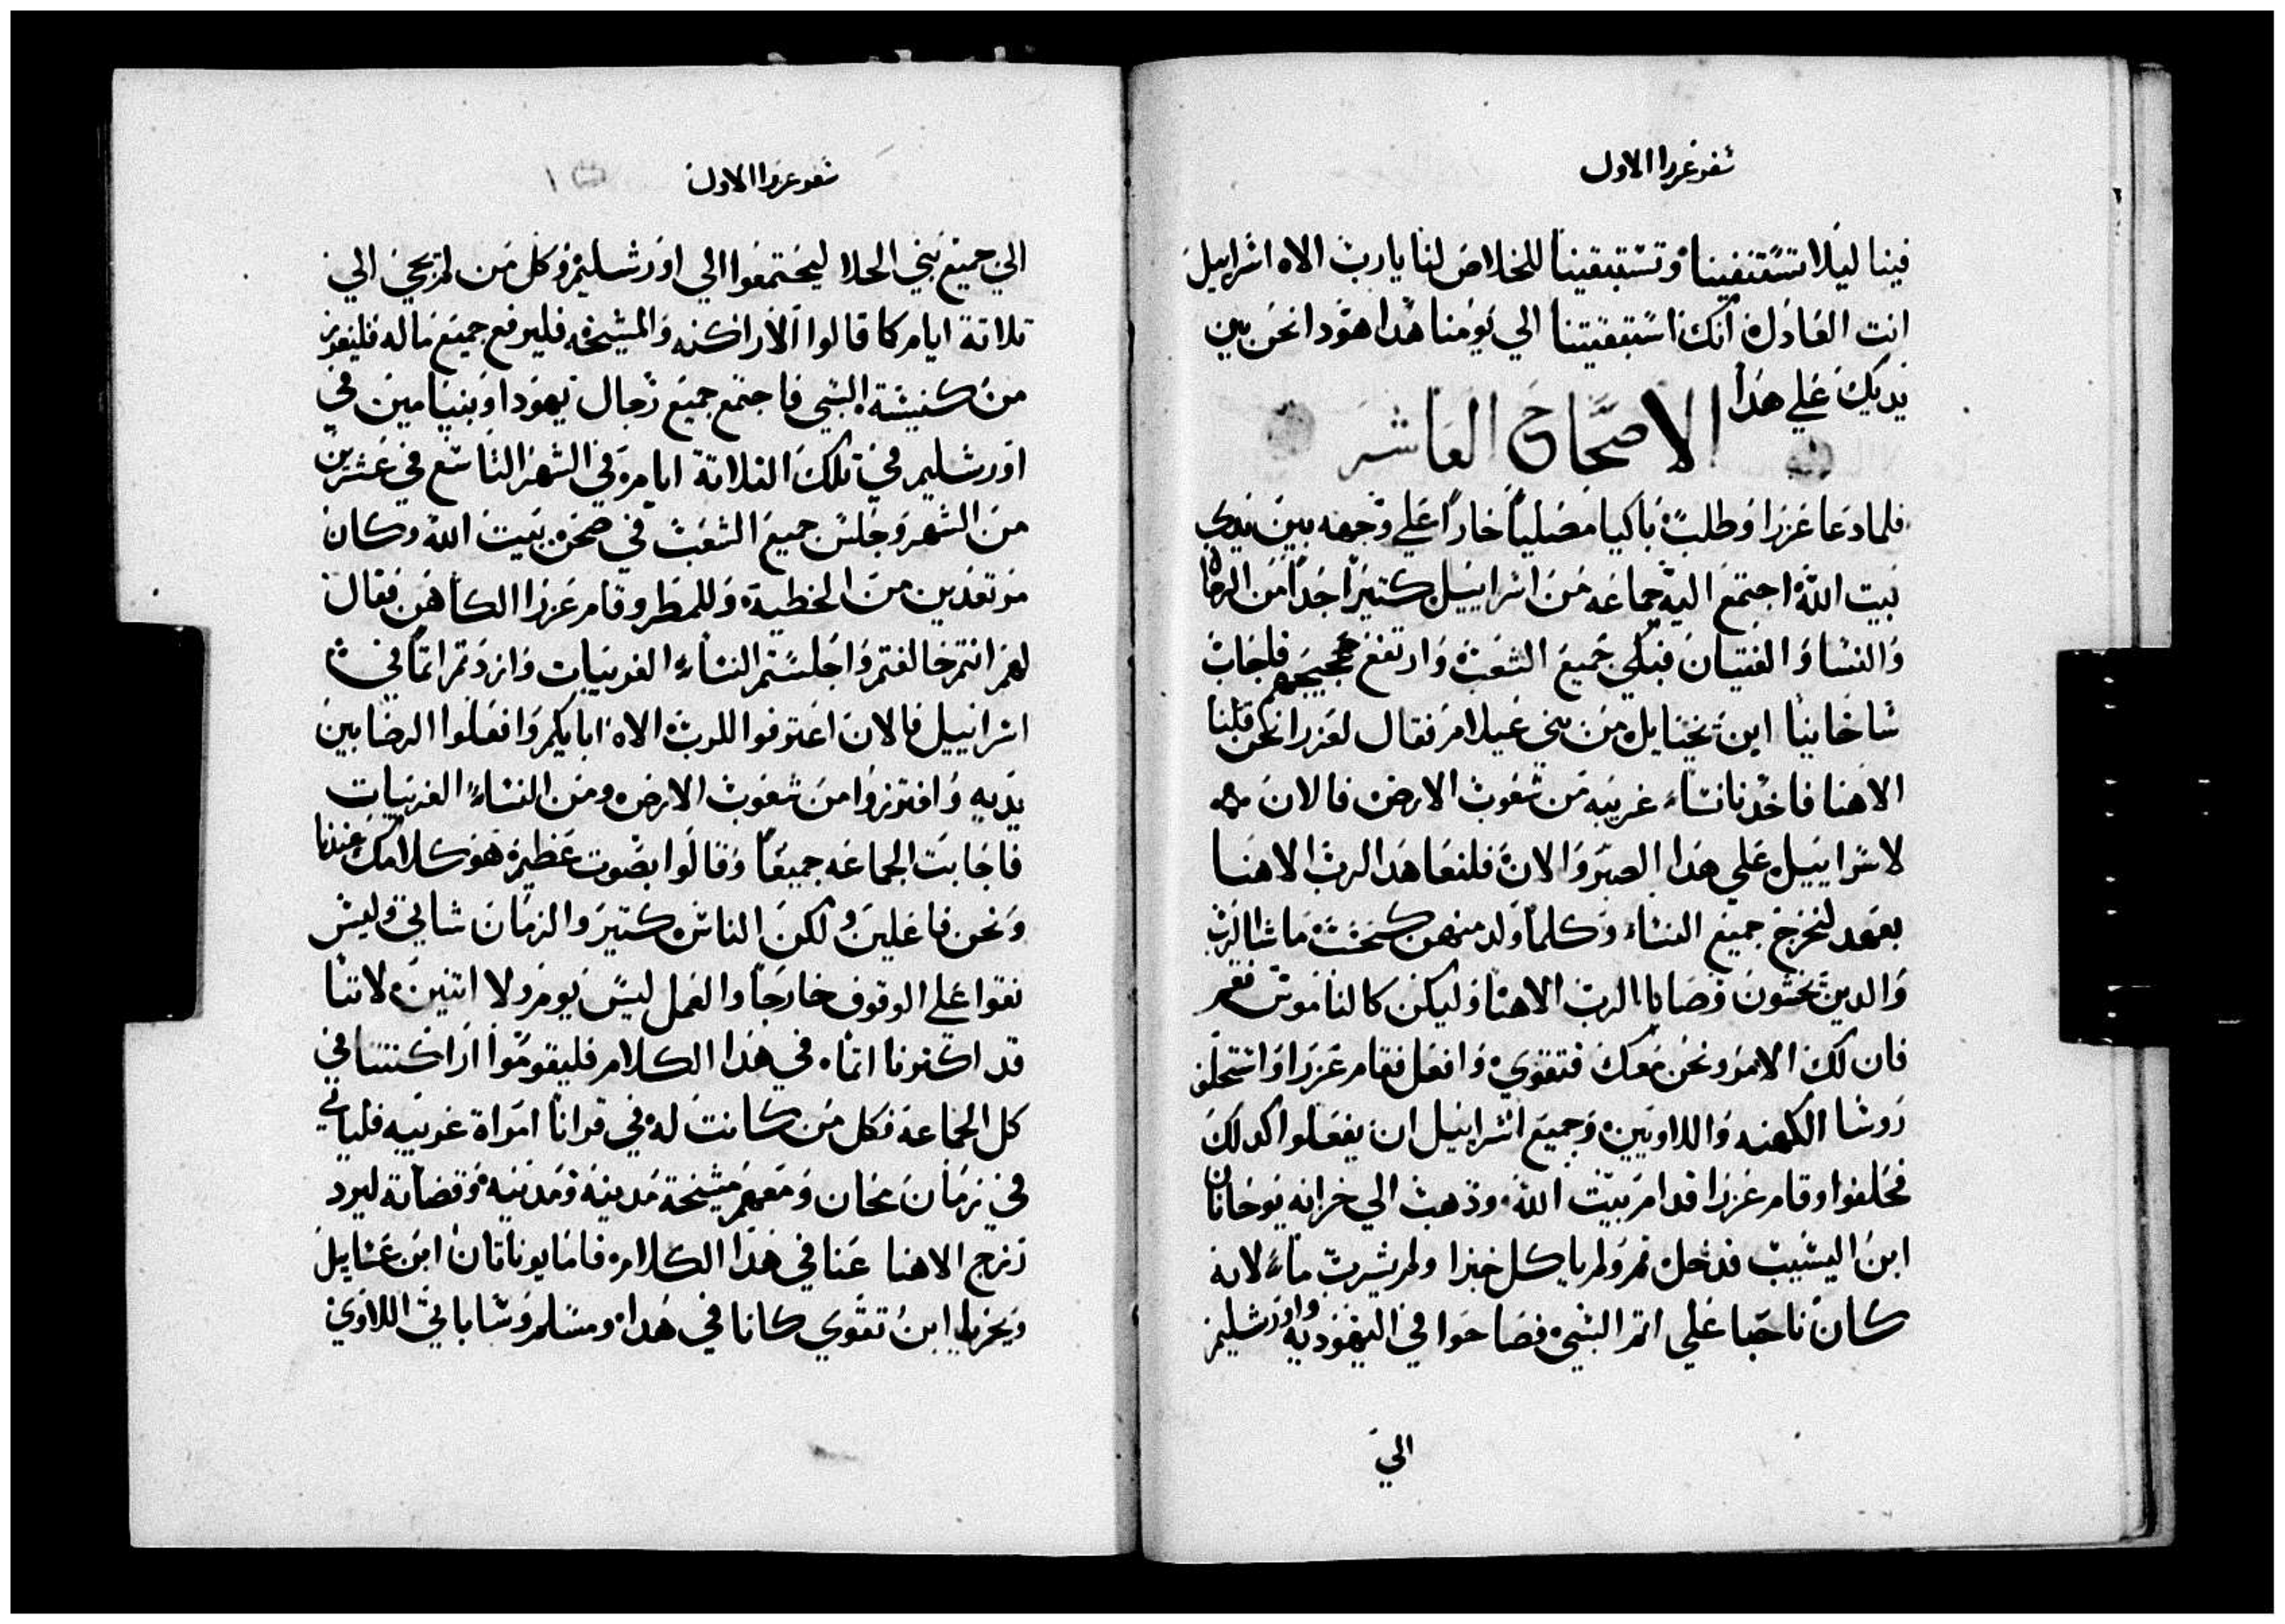 سفر عزرا الاول
فينا ليلا تستنفينا وتستبقينا للخلاص لنا يا رب الاه اسراييل
انت العادل انك استبقيتنا الي يومنا هدا هودا نحن بين
يديك علي هدا
الاصحاح العاشر
فلما دعا عزرا وطلب باكيا مصليا خارا علي وجهه بين يدي
بيت الله اجتمع اليه جماعه من اسراييل كتيرا جدا من الرجال
والنسا والفتيان فبكي جميع الشعب وارتفع عجيجهم فاجاب
شاخانيا ابن نحنايل من بني عيلام فقال لعزرا نحن قتلنا
الاهنا فاخدنا نساء غريبه من شعوب الارض فالان
لاسراييل علي هدا الصبر والان فلنعاهد الرب الاهنا
بعهد لنخرج جميع النساء وكلما ولد منهن كنحت ما شا الرب
والدين يخشون وصايا الرب الاهنا وليكن كالناموس نعم
فان لك الامر ونحن معك فتقوي وافعل فقام عزرا واستحلف
روسا الكهنه واللاويين وجميع اسراييل ان يفعلوا كدلك
فحلفوا وقام عزرا قدام بيت الله وذهب الي خزانه يوحانان
ابن اليشيب فدخل تم ولم ياكل خبزا ولم يشرب ماء لانه
كان ناحبا علي اتم السبي فصاحوا في اليهوديه واورشليم
الي
سفر عزرا الاول
الي جميع بني الجلا ليجتمعوا الي اورشليم وكل من لم يجي الي
تلاتة ايام كما قالوا الاراكنه والمشيخه فليرفع جميع ماله فليفرز
من كنيسة السبي فاجتمع جميع رجال يهودا وبنيامين في
اورشليم في تلك التلاتة ايام في الشهر التاسع في عشرين
من الشهر وجلس جميع الشعب في صحن بيت الله وكان
مرتعدين من الخطية وللمطر وقام عزرا الكاهن فقال
لهم انتم خالفتم واجلستم النساء الغريبات وازدتم اتما في
اسراييل فالان اعترفوا للرب الاه ابايكم وافعلوا الرضا بين
يديه وافترزوا من شعوب الارض ومن النساء الغريبات
فاجابت الجماعه جميعا وقالوا بصوت عظيم هو كلامك عندنا
ونحن فاعلين ولكن الناس كتير والزمان شاتي وليس
نقوا علي الوقوف خارجا والعمل ليس يوم ولا اتنين لاننا
قد اكترنا اتماه في هدا الكلام فليقوموا اراكنتنا في
كل الجماعة فكل من كانت له في قرانا امراة غريبه فلياتي
في زمان عخان ومعهم مشيخة مدينه ومدينه وقضاته ليرد
زنج الاهنا عنا في هدا الكلام فاما يوناتان ابن عسايل
ويحزيا ابن تقوي كانا في هدا ومسلم وشاباتي اللاوي